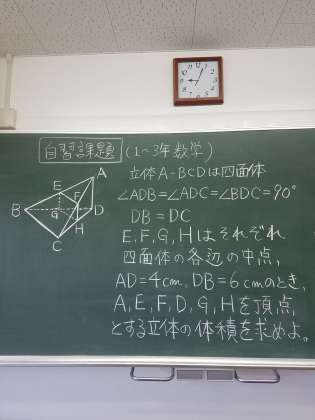 自習課題 (1~3年数学)
立体A-BCDは四面体
∠ADB=∠ADC=∠BDC=90°
DB=DC
E,F,G,Hはそれぞれ
四面体の各辺の中点,
AD=4cm, DB=6cmのとき,
A,E,F,D,G,Hを頂点,
とする立体の体積を求めよ。
A
E
F
B
G
D
H
C
12
1
2
3
4
5
6
7
8
9
10
11